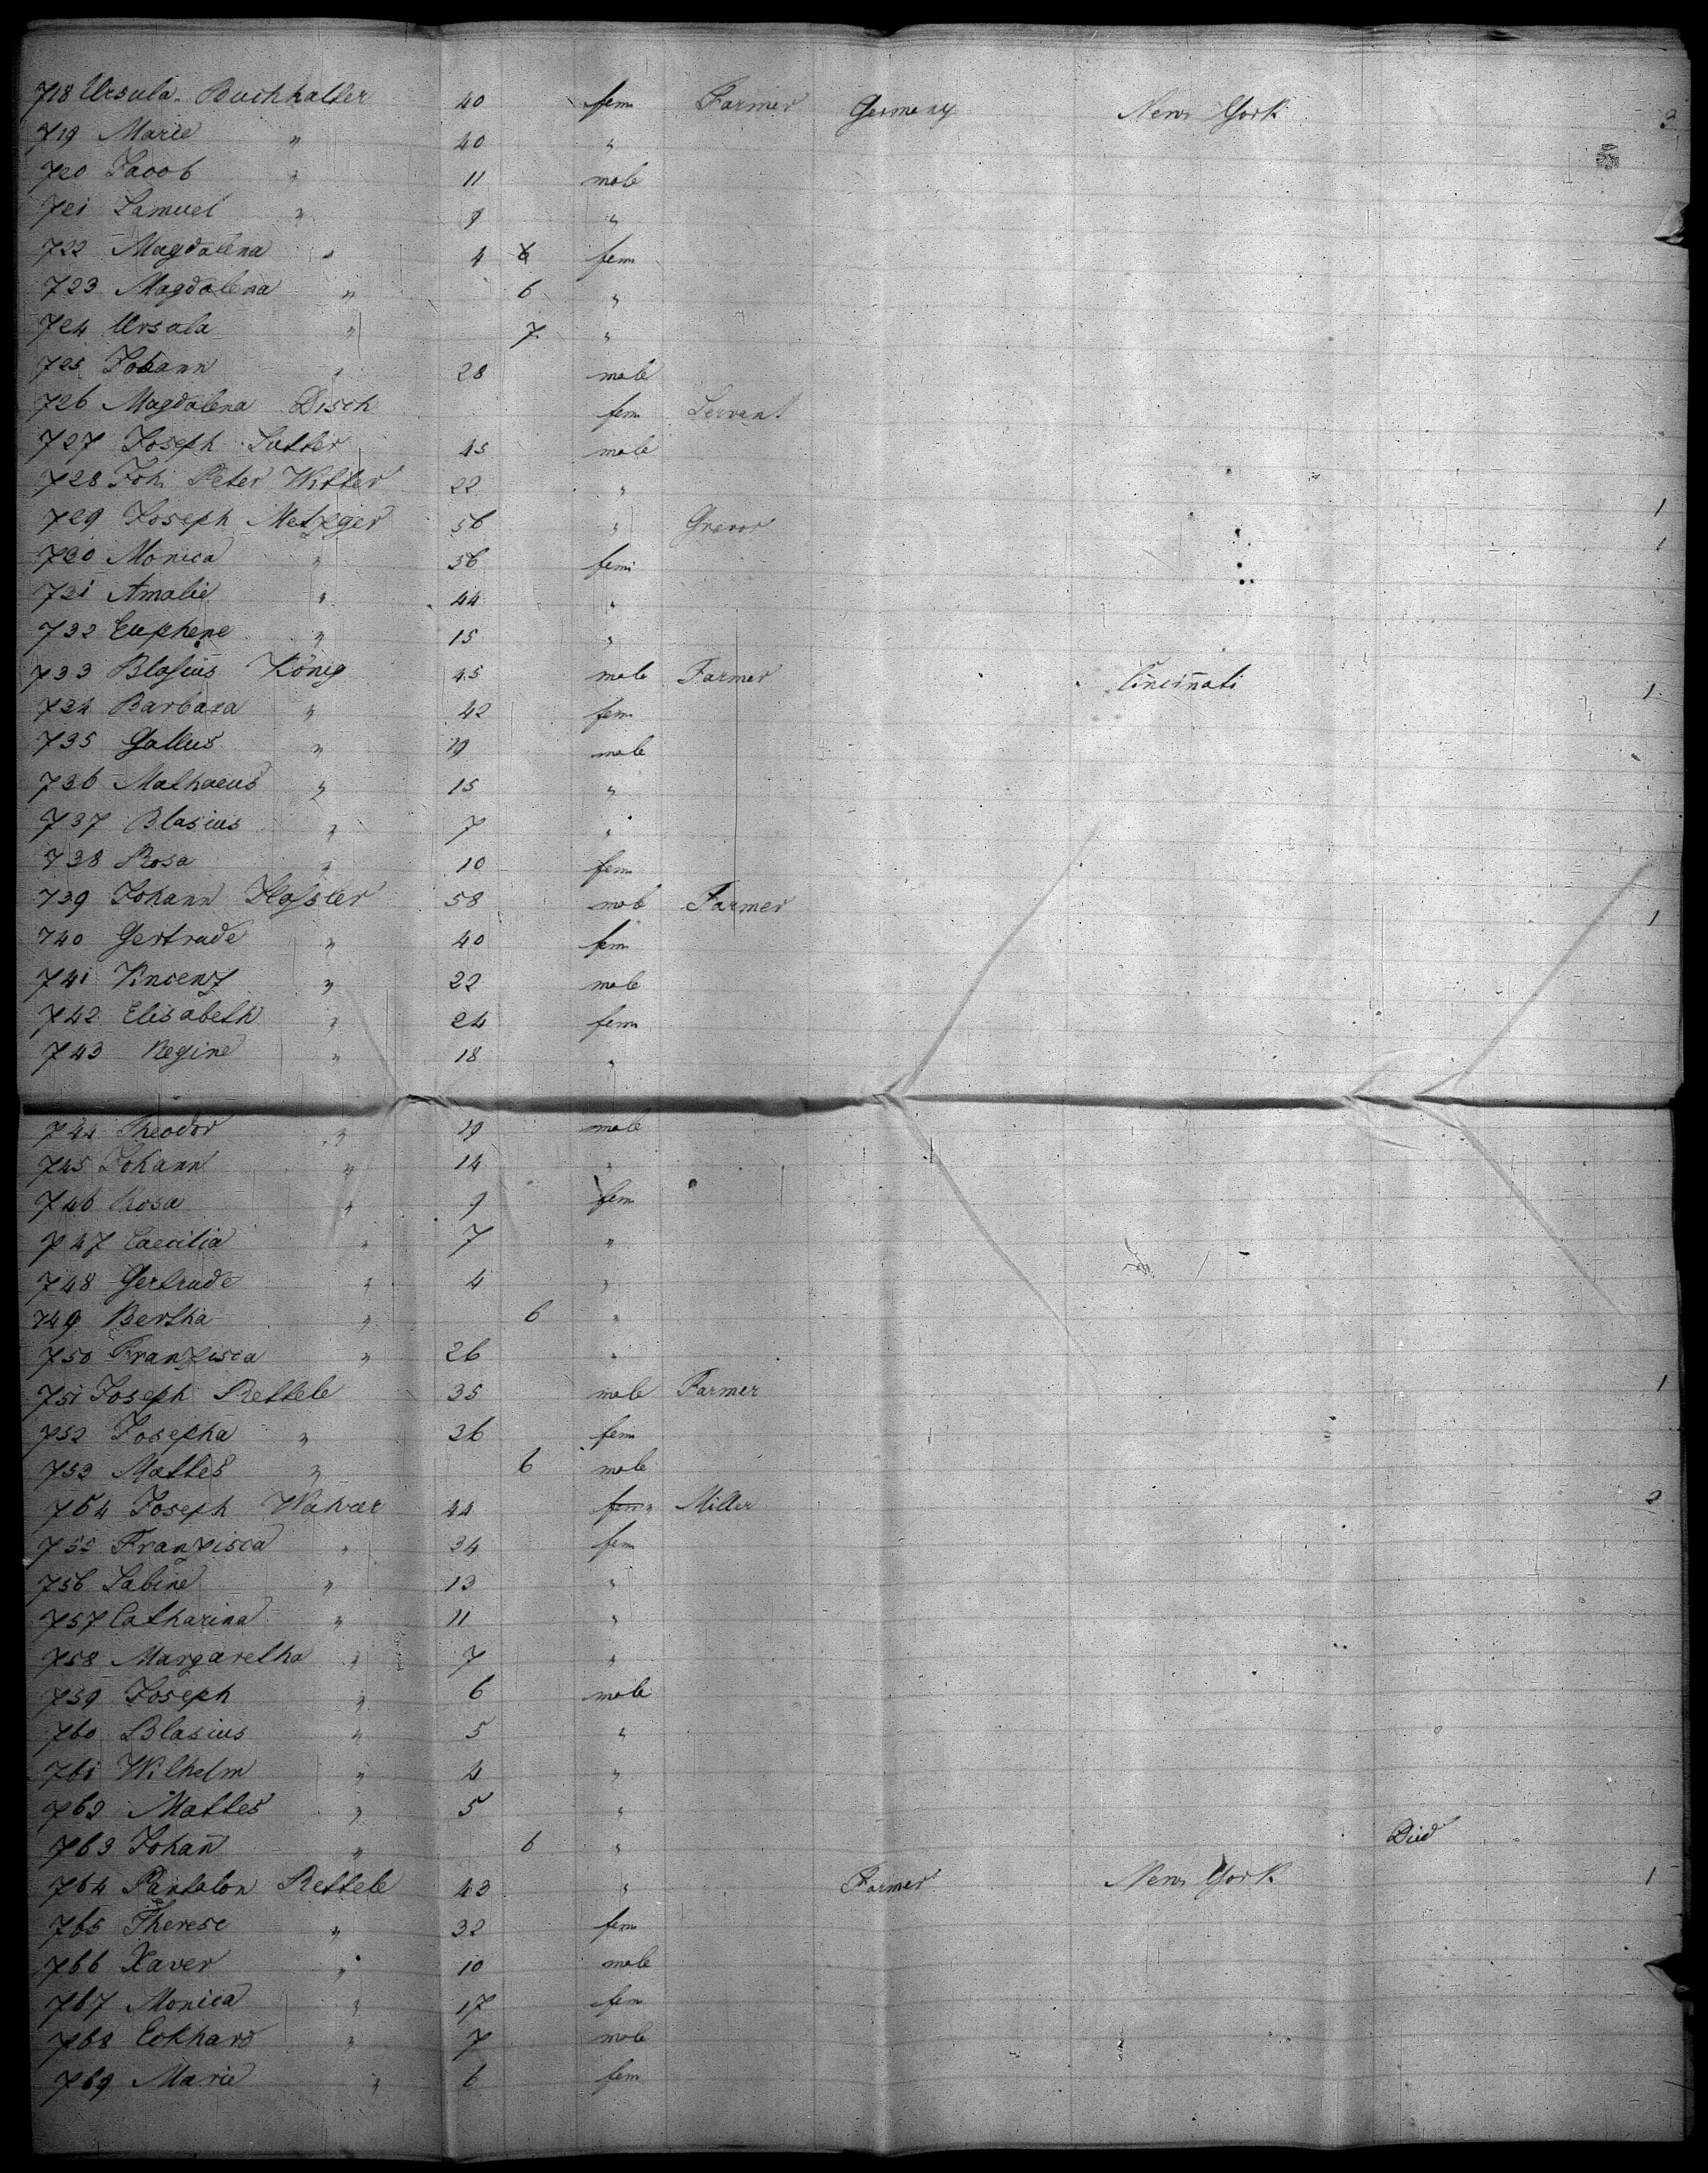 718 Ursula Buchhalter 40 fem Farmer Germany New York 3
719 Marie " 40 "
720 Jacob " 11 male
721 Samuel " 9 "
722 Magdalena " 4 fem
723 Magdalena " 6 "
724 Ursula " 7 "
725 Johann " 28 male
726 Magdalena Disch fem Servant
727 Joseph Sutter 45 male
728 Joh. Peter Witter 22 " 1
729 Joseph Metzger 56 " 1
730 Monica " 56 fem
731 Amalie " 44 "
732 Euphene " 15 "
733 Blasius König 45 male Farmer Cincinnati 1
734 Barbara " 42 fem
735 Gallus " 19 male
736 Mathaeus " 15 "
737 Blasius " 7 "
738 Rosa " 10 fem
739 Johann 58 male Farmer 1
740 Gertrude " 40 fem
741 Vincenz " 22 male
742 Elisabeth " 24 fem
743 Regine " 18 "
744 Theodor " 19 male
745 Johann " 14 "
746 Rosa " 9 fem
747 Caecilia " 7 "
748 Gertrude " 4 "
749 Bertha " 6 "
750 Franzisca " 26 "
751 Joseph Rettele 35 male Farmer 1
752 Josepha " 36 fem
753 Mattes " 6 male
754 Joseph 44 fem " Miller 2
755 Franzisca " 34 fem
756 Sabine " 13 "
757 Catharina " 11 "
758 Margaretha " 7 "
759 Joseph " 6 male
760 Blasius " 5 "
761 Wilhelm " 4 "
762 Mattes " 5 "
763 Johan̄ " 6 " Died
764 Pantalon Rettele 43 " Farmer New York 1
765 Therese " 32 fem
766 Xaver " 10 male
767 Monica " 17 fem
768 Eckhard " 7 male
769 Marie " 6 fem